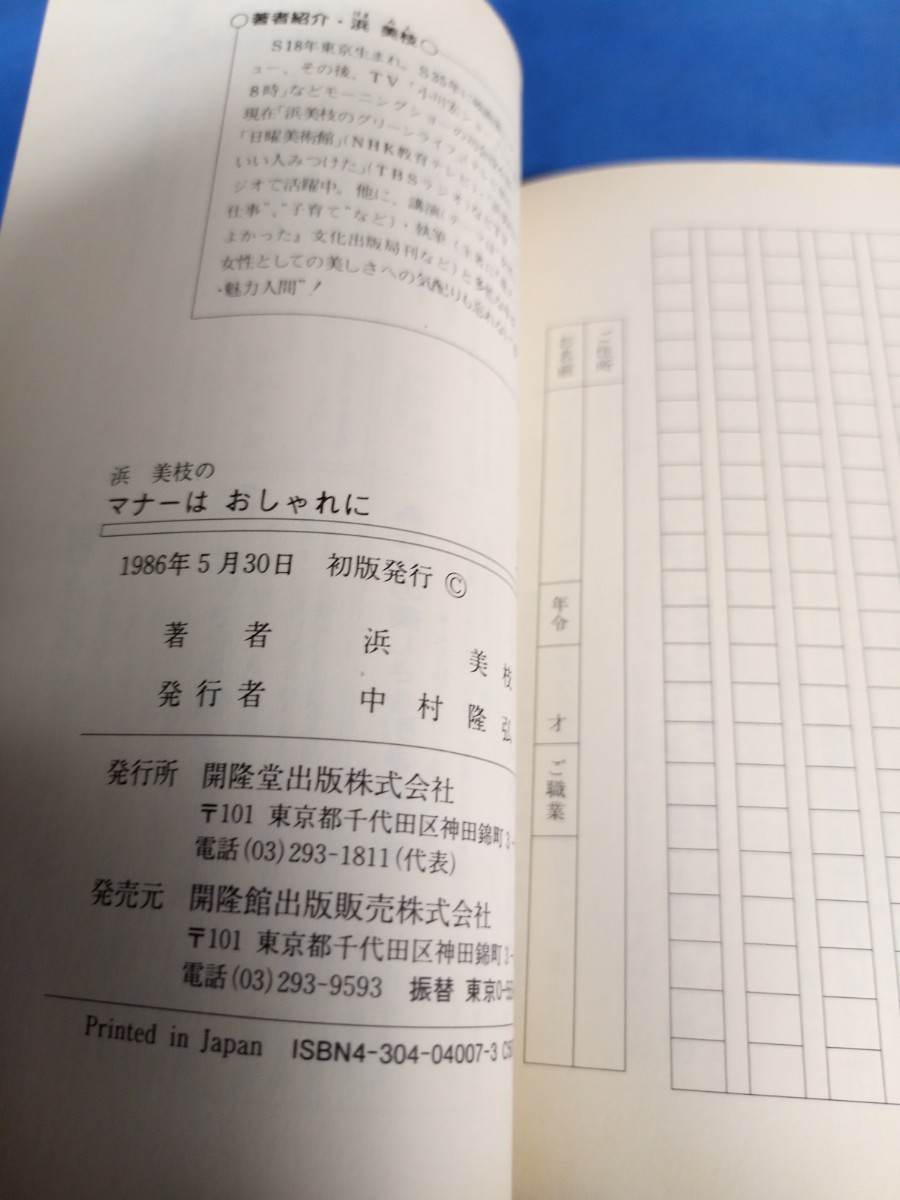 著者紹介・浜 美枝
S18年東京生まれ。S35年
ュー、その後、TV「小川宏ショー
8時」などモーニングショーの
現在「浜美枝のグリーンライフ
「日曜美術館」(NHK教育テレビ)
いい人みつけた」(TBSラジオ)など
ジオで活躍中。他に、講演(テーマは
仕事"、"子育て"など)・執筆
よかった』文化出版局刊など)と多
女性としての美しさへの気配りも忘れない
"魅力人間"!
浜 美枝の
マナーは おしゃれに
1986年5月30日 初版発行 ©
著 者 浜 美 枝
発行者 中 村 隆 弘
発行所 開隆堂出版株式会社
〒101 東京都千代田区神田錦町3-
電話(03)293-1811(代表)
発売元 開隆館出版販売株式会社
〒101 東京都千代田区神田錦町3-
電話(03)293-9593 振替 東京0-
Printed in Japan ISBN4-304-04007-3
ご住所
お名前
年令
才
ご職業